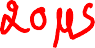 20 μs